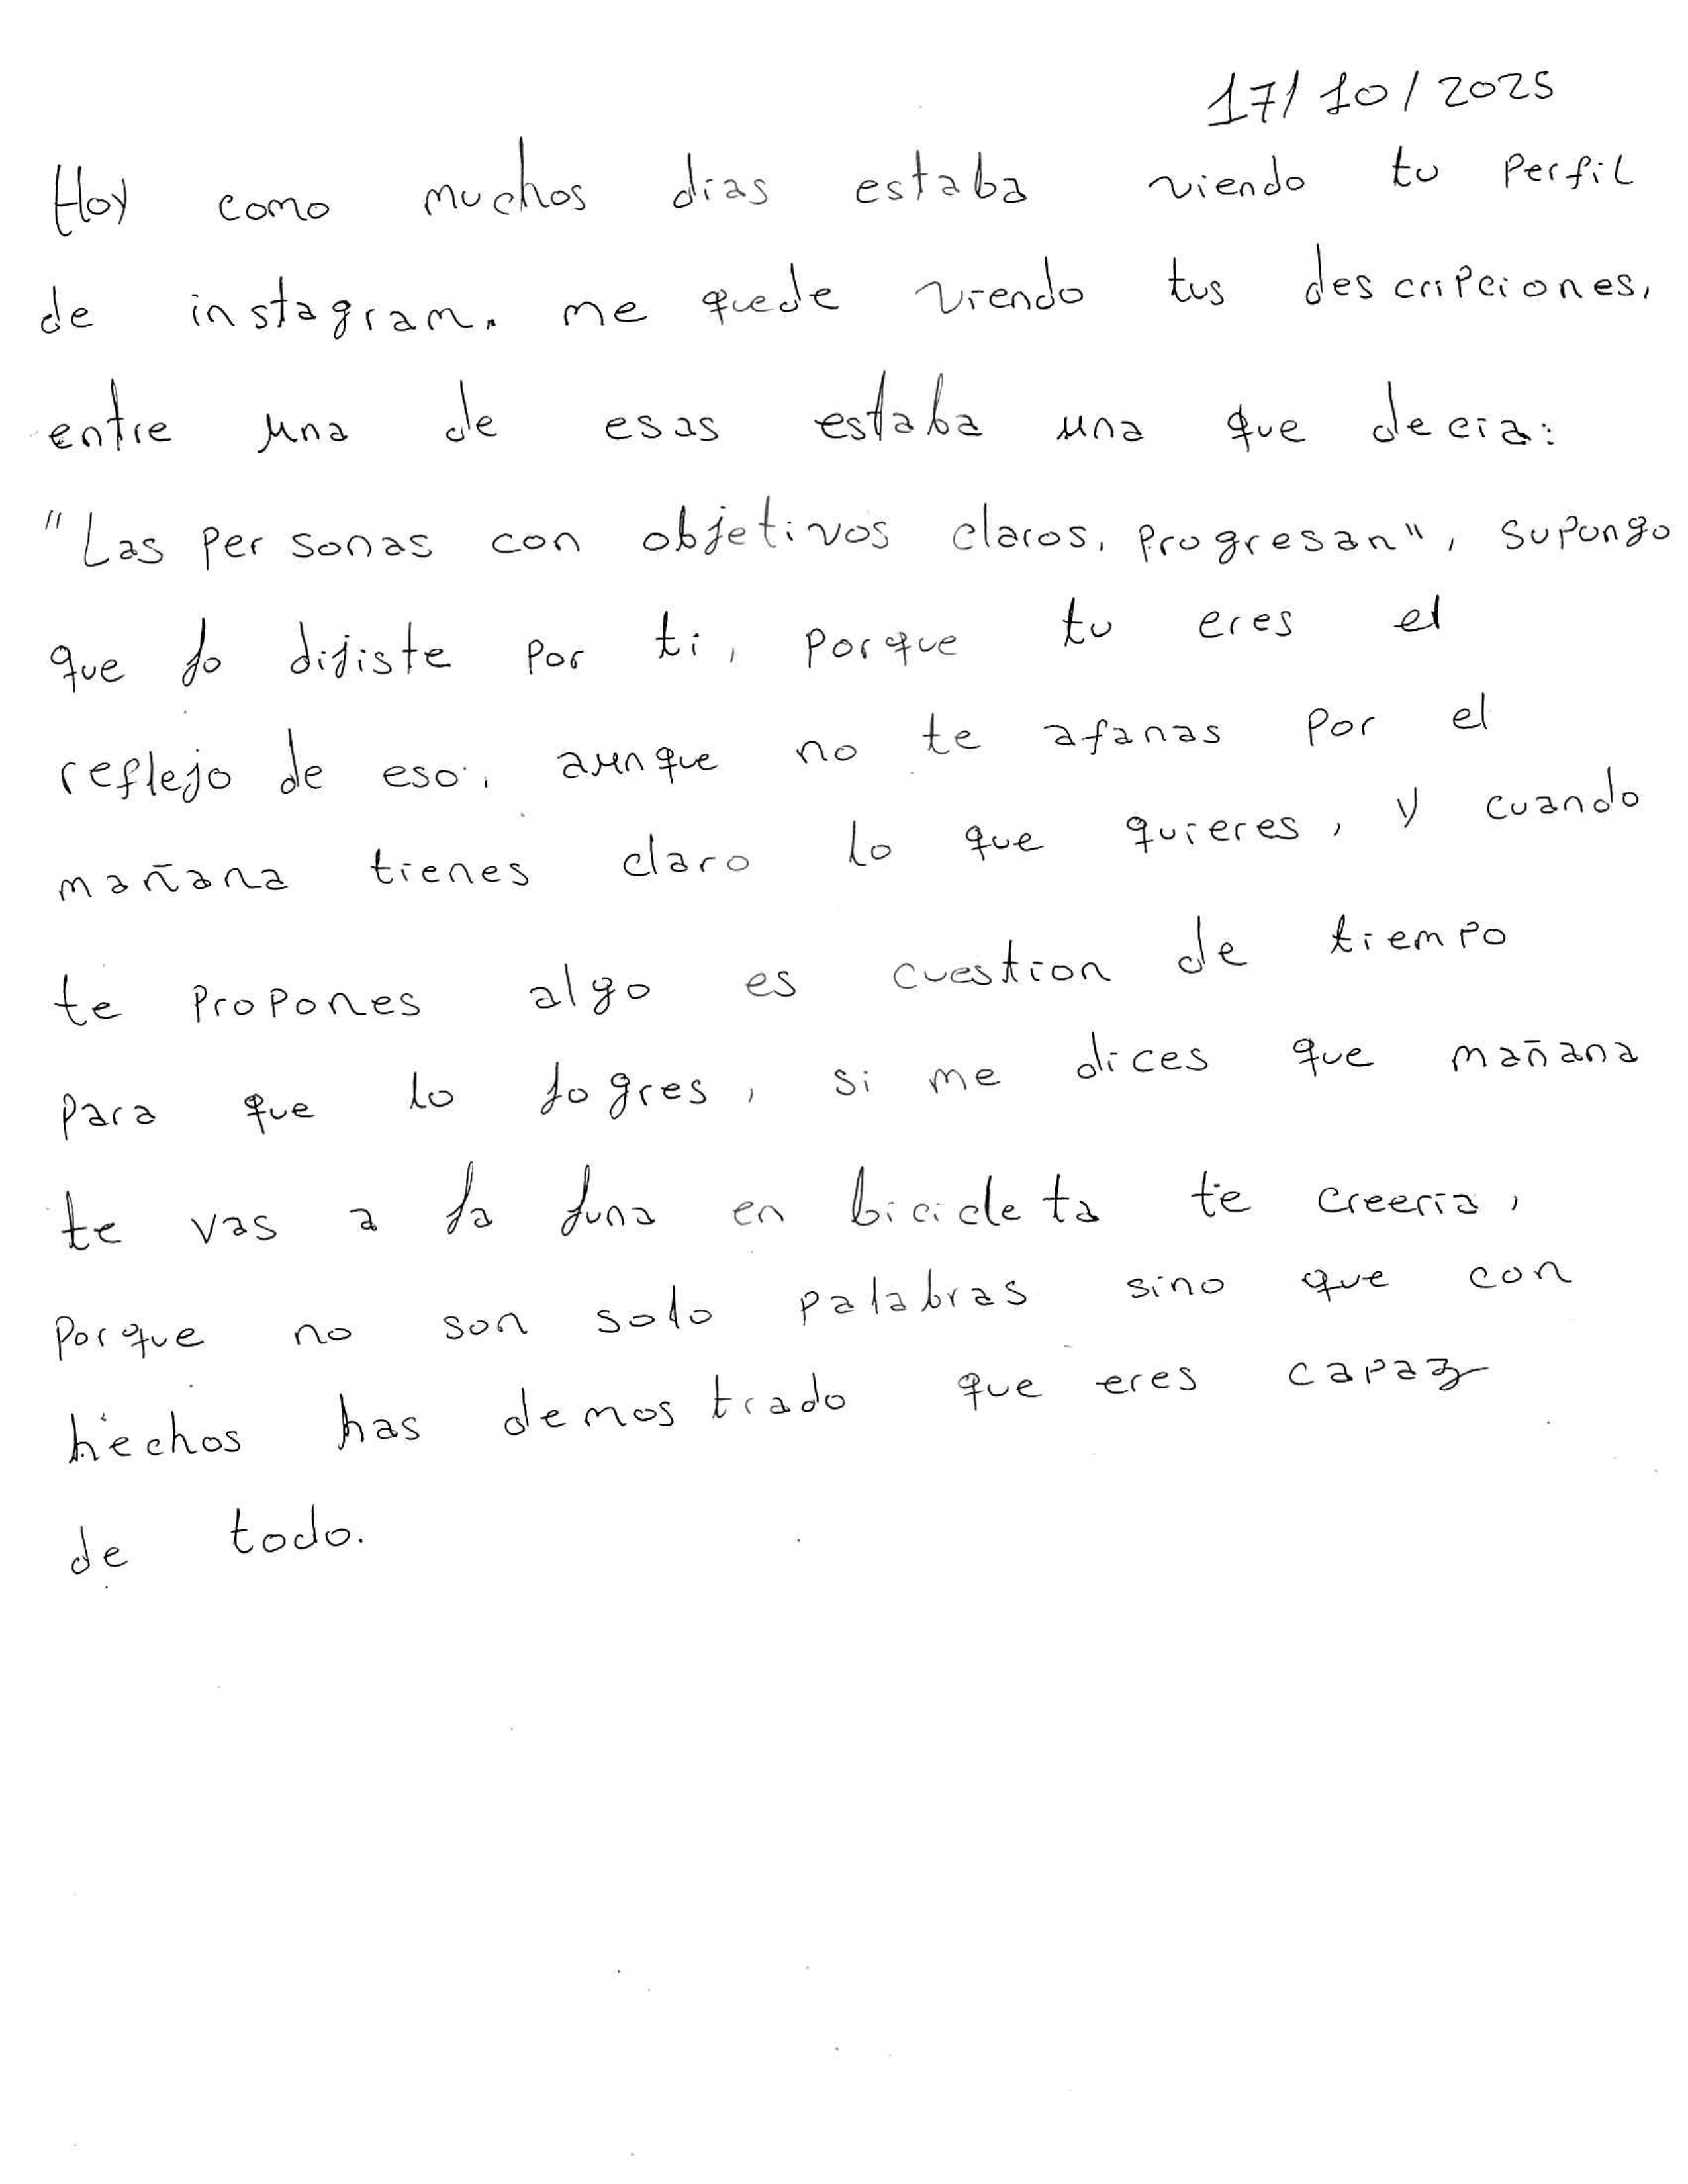 17/10/2025
Hoy como muchos dias estaba viendo tu perfil
de instagram. me quede viendo tus descripciones,
entre una de esas estaba una que decia:
"Las personas con objetivos claros, progresan", supongo
que lo dijiste por ti, porque tu eres el
reflejo de eso, aunque no te afanas por el
mañana tienes claro lo que quieres, y cuando
te propones algo es cuestion de tiempo
para que lo logres, si me dices que mañana
te vas a la luna en bicicleta te creeria,
porque no son solo palabras sino que con
hechos has demostrado que eres capaz
de todo.